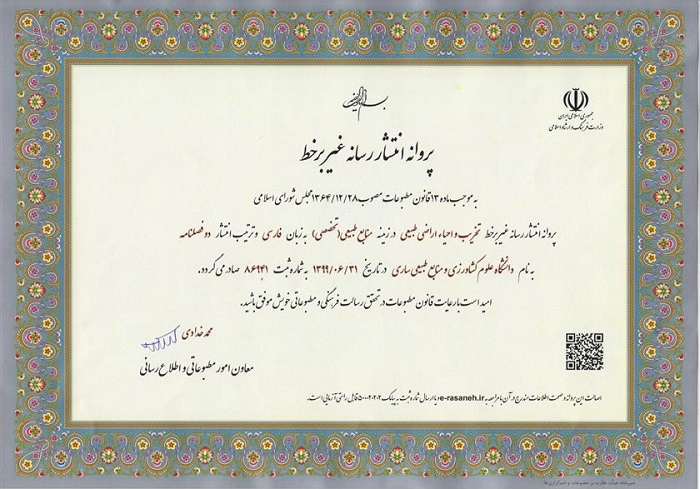 بسم الله الرحمن الرحیم
جمهوری اسلامی ایران
وزارت فرهنگ و ارشاد اسلامی
پروانه انتشار رسانه غیر برخط
به موجب ماده ۱۳ قانون مطبوعات مصوب ۱۳۶۴/۱۲/۲۸ مجلس شورای اسلامی
پروانه انتشار رسانه غیر برخط تخریب و احیاء اراضی طبیعی در زمینه منابع طبیعی (تخصصی) به زبان فارسی و ترتیب انتشار دو فصلنامه
به نام دانشگاه علوم کشاورزی و منابع طبیعی ساری در تاریخ ۱۳۹۹/۰۶/۳۱ به شماره ثبت ۸۶۹۴۱ صادر می گردد.
امید است با رعایت قانون مطبوعات در تحقق رسالت فرهنگی و مطبوعاتی خویش موفق باشید.
محمد خدادی
معاون امور مطبوعاتی و اطلاع رسانی
اصالت این پروانه و صحت اطلاعات مندرج در آن با مراجعه به e-rasaneh.ir و یا ارسال شماره ثبت به پیامک ۵۰۰۰۲۰۲۰۲ قابل راستی آزمایی است.
دبیرخانه هیأت نظارت بر مطبوعات و خبرگزاری ها